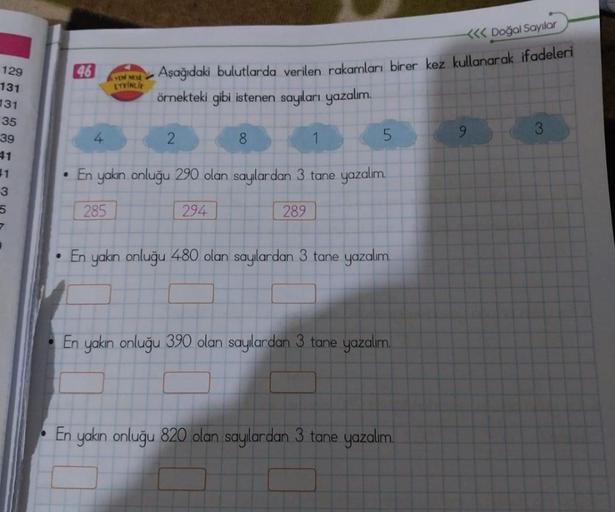 <<< Doğal Sayılar
129
131
131
35
39
41
41
3
5
7
46
YENİ NESİL
ETKİNLİK
Aşağıdaki bulutlarda verilen rakamları birer kez kullanarak ifadeleri
örnekteki gibi istenen sayıları yazalım.
4 2 8 1 5 9 3
• En yakın onluğu 290 olan sayılardan 3 tane yazalım.
285 294 289
• En yakın onluğu 480 olan sayılardan 3 tane yazalım.
• En yakın onluğu 390 olan sayılardan 3 tane yazalım.
• En yakın onluğu 820 olan sayılardan 3 tane yazalım.